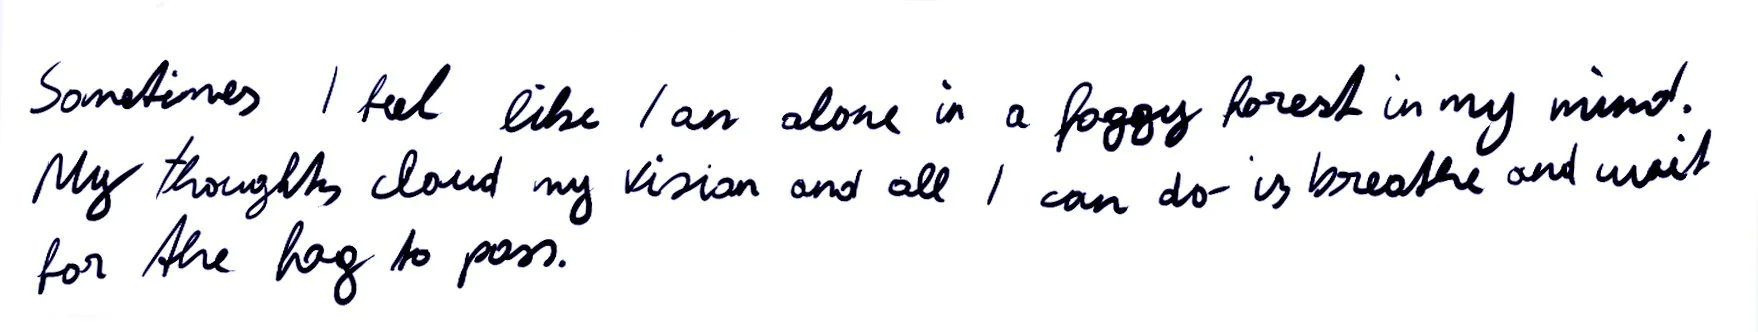 Sometimes I feel like I am alone in a foggy forest in my mind.
My thoughts cloud my vision and all I can do is breathe and wait
for the fog to pass.